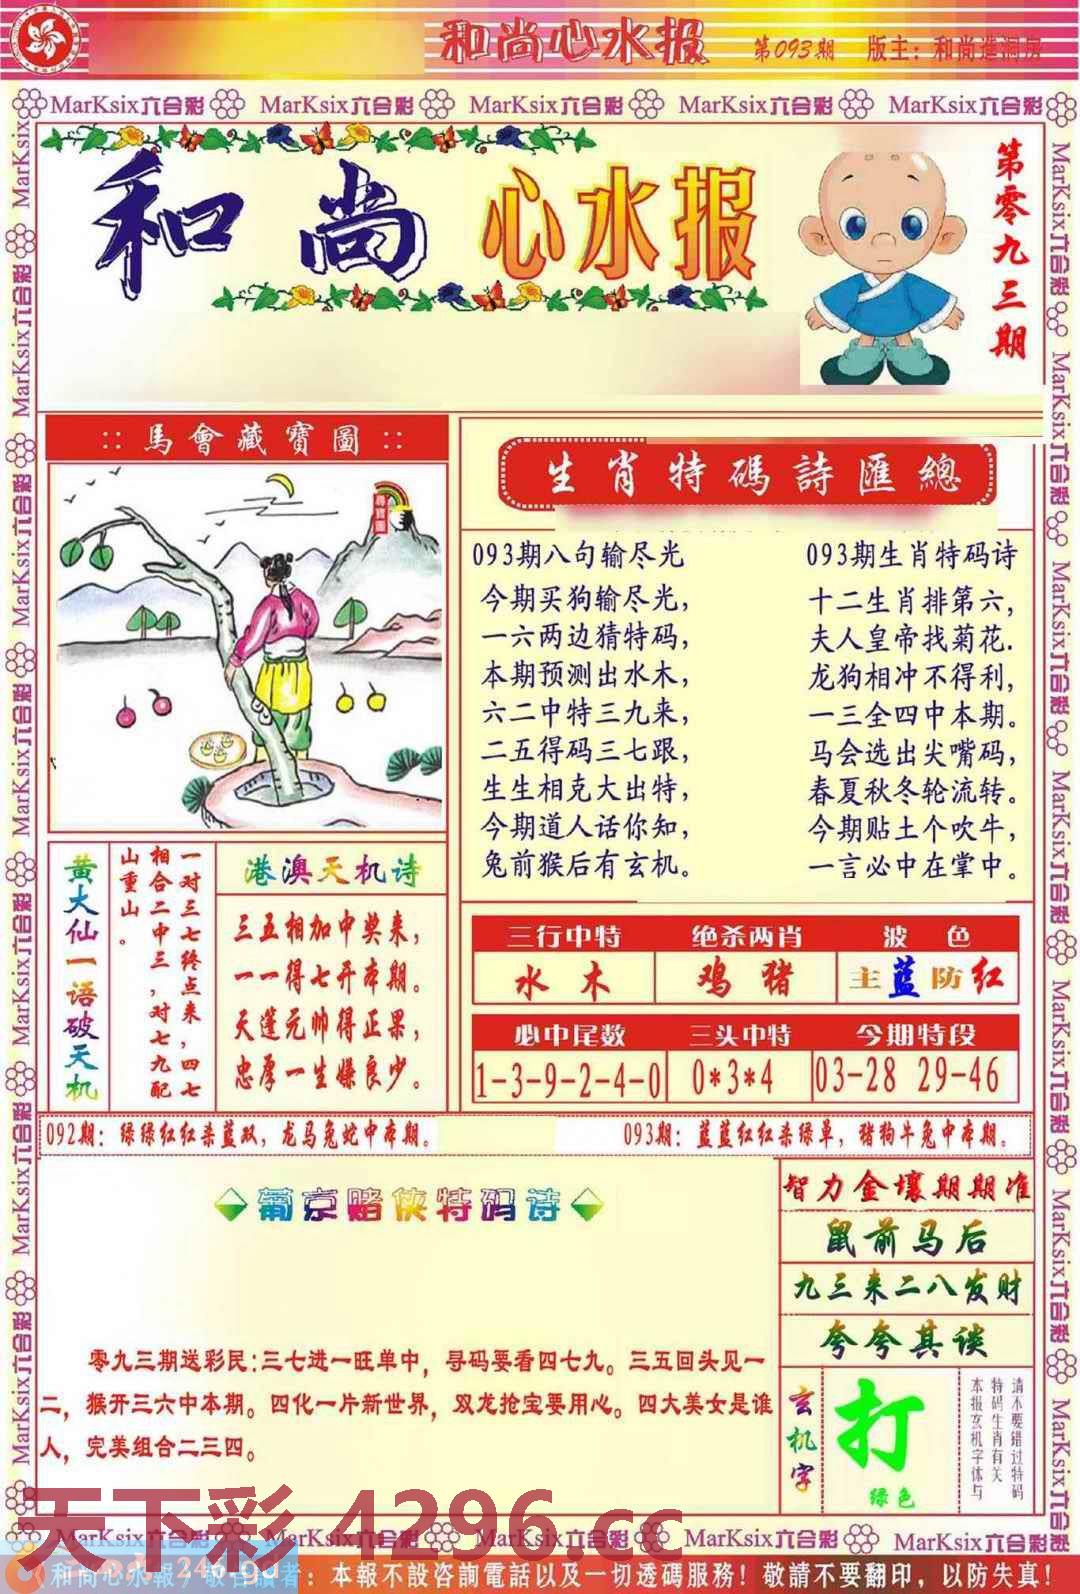 和尚心水报
第093期
版主：和尚進洞房
MarKsix六合彩 MarKsix六合彩 MarKsix六合彩 MarKsix六合彩 MarKsix六合彩
和尚 心水报
第零九三期
::馬會藏寶圖::
尋寶圖
生肖特碼詩匯總
093期八句输尽光
今期买狗输尽光，
一六两边猜特码，
本期预测出水木，
六二中特三九来，
二五得码三七跟，
生生相克大出特，
今期道人话你知，
兔前猴后有玄机。
093期生肖特码诗
十二生肖排第六，
夫人皇帝找菊花.
龙狗相冲不得利，
一三全四中本期。
马会选出尖嘴码，
春夏秋冬轮流转。
今期贴士个吹牛，
一言必中在掌中。
黄大仙一语破天机
一对三七终点来，四七
相合二中三，对七九配
山重山。
港澳天机诗
三五相加中奖来，
一一得七开本期。
天蓬元帅得正果，
忠厚一生嫌良少。
三行中特 绝杀两肖 波色
水木 鸡猪 主蓝防红
必中尾数 三头中特 今期特段
1-3-9-2-4-0 0*3*4 03-28 29-46
092期：绿绿红红杀蓝双，龙马兔蛇中本期。
093期：蓝蓝红红杀绿单，猪狗牛兔中本期。
葡京赌侠特码诗
零九三期送彩民：三七进一旺单中，寻码要看四七九。三五回头见一
二，猴开三六中本期。四化一片新世界，双龙抢宝要用心。四大美女是谁
人，完美组合二三四。
智力金壤期期准
鼠前马后
九三来二八发财
夸夸其谈
玄机字
打
绿色
请不要错过特码
特码生肖有关
本报玄机字体与
天下彩 4296.cc
MarKsix六合彩 MarKsix六合彩 MarKsix六合彩 MarKsix六合彩 MarKsix六合彩
：本報不設咨詢電話以及一切透碼服務！敬請不要翻印，以防失真！